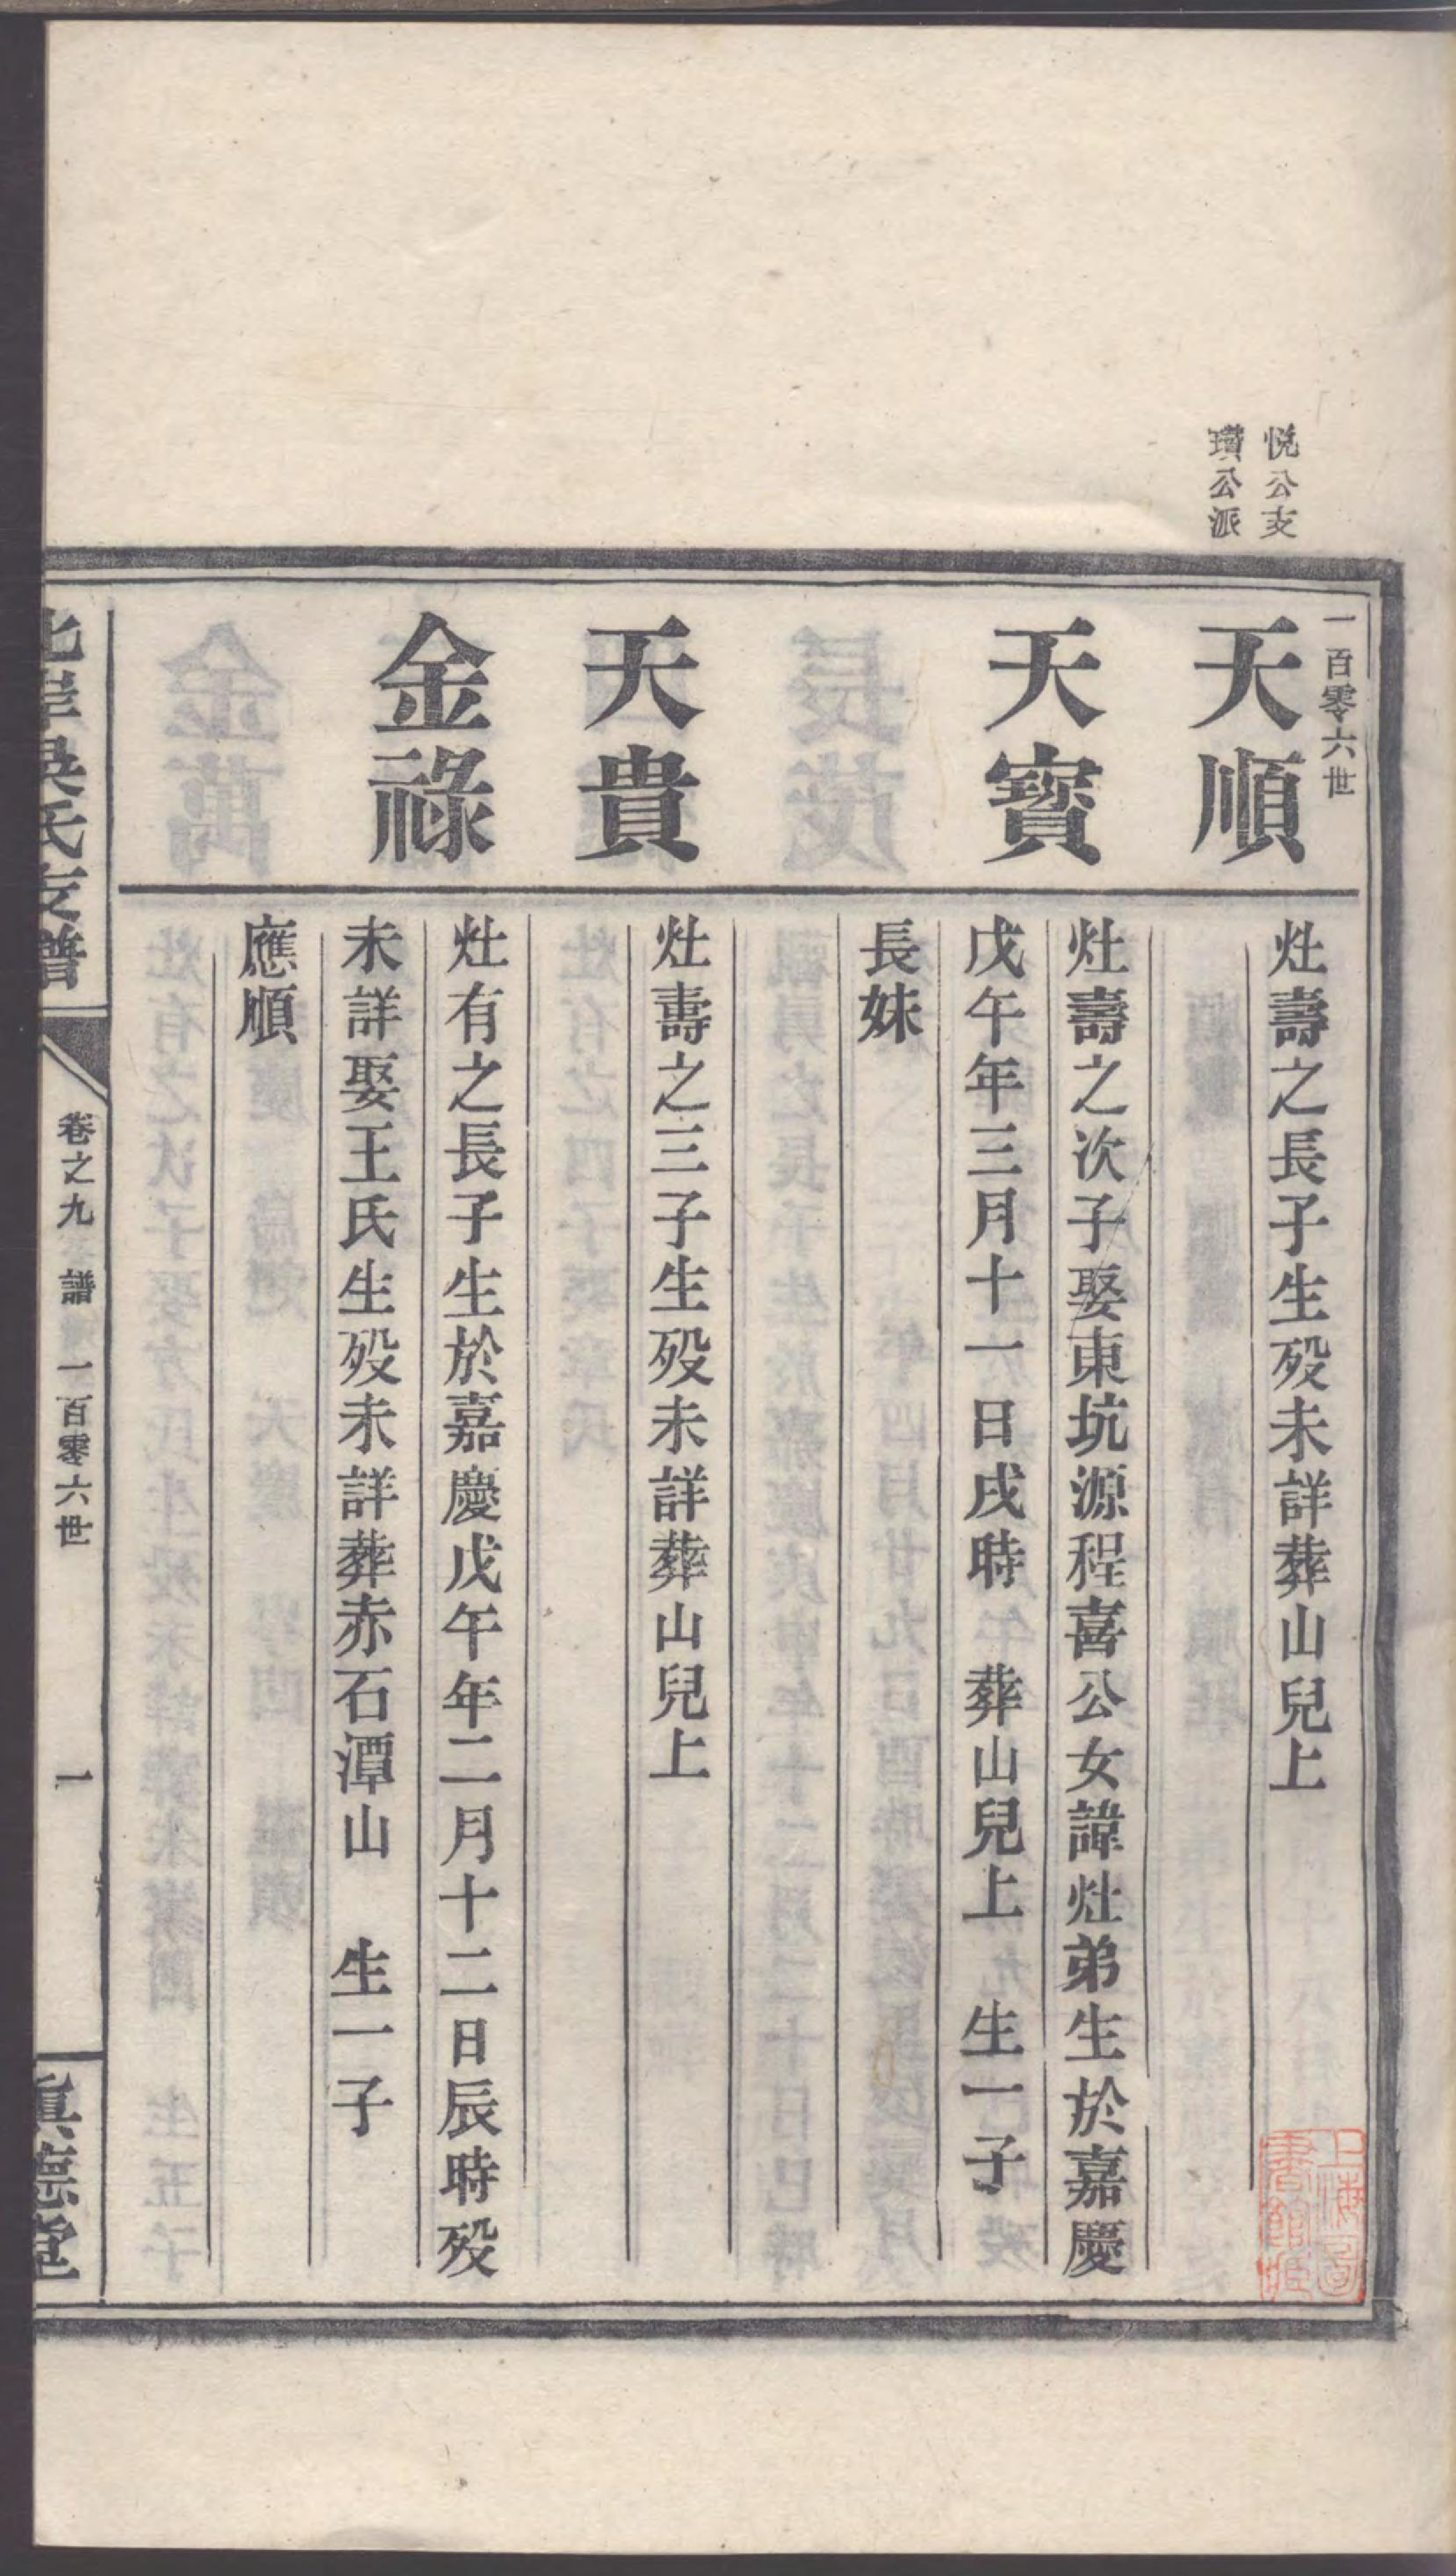 悦公支
瓚公派
一百零六世
天順
灶壽之長子生殁未詳葬山兒上
天寶
灶壽之次子娶東坑源程喜公女諱灶弟生於嘉慶
戊午年三月十一日戌時　葬山兒上　生一子
長妹
天貴
灶壽之三子生殁未詳葬山兒上
金祿
灶有之長子生於嘉慶戊午年二月十二日辰時殁
未詳娶王氏生殁未詳葬赤石潭山　生一子
應順
北岸吳氏支譜
卷之九　譜　一百零六世
一
眞德堂
上海圖
書館藏